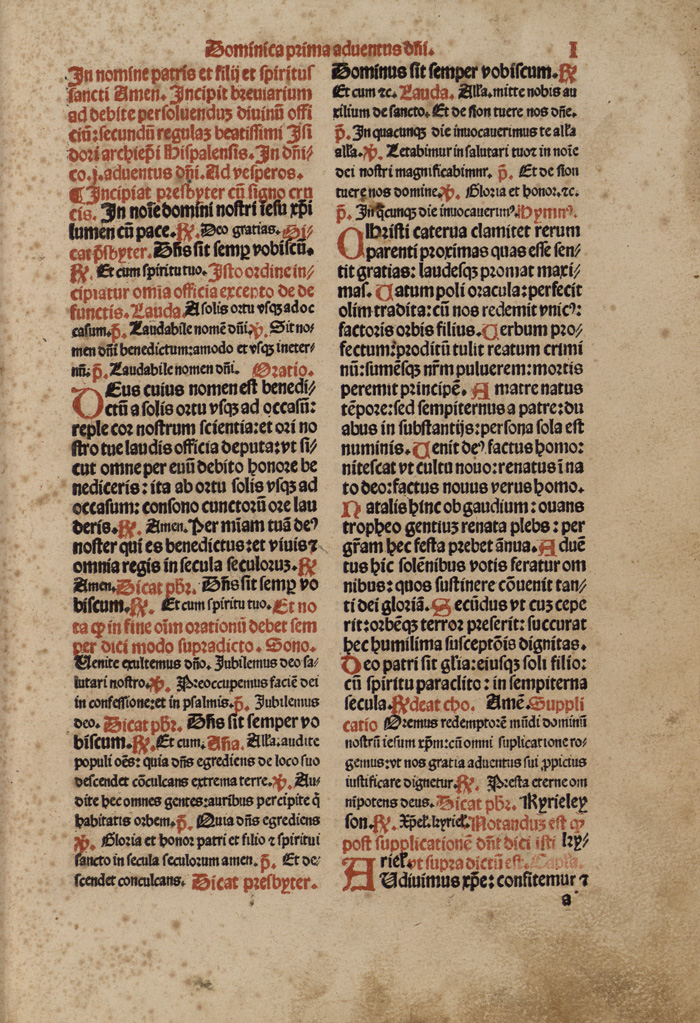 Dominica prima aduentus dñi.
I
In nomine patris et filij et spiritus
sancti Amen. Incipit breuiarium
ad debite persoluenduȝ diuinũ offi
ciũ: secundũ regulaȝ beatissimi Isi
dori archiep̃i Hispalensis. In dñi⸗
co.j. aduentus dñi. Ad vesperos.
¶ Incipiat presbyter cũ signo cru
cis. In noĩe domini nostri iesu xp̃i
lumen cũ pace. ℟. Deo gratias. Di⸗
cat p̃sbyter. Dñs sit semꝑ vobiscũ.
℟. Et cum spiritu tuo. Isto ordine in⸗
cipiatur om̃ia officia excepto de de
functis. Lauda A solis ortu vsqȝ ad oc
casum. p̃. Laudabile nomẽ dñi. ℣. Sit no⸗
men dñi benedictum: amodo et vsqȝ in eter⸗
nũ. p̃. Laudabile nomen dñi. Oratio.
DEus cuius nomen est benedi⸗
ctũ a solis ortu vsqȝ ad occasũ:
reple cor nostrum scientia: et ori no
stro tue laudis officia deputa: vt si⸗
cut omne per euũ debito honore be
nediceris: ita ab ortu solis vsqȝ ad
occasum: consono cunctorũ ore lau
deris. ℟. Amen. Per m̃iam tuã deꝰ
noster qui es benedictus: et viuis ⁊
omnia regis in secula seculoruȝ. ℟
Amen. Dicat pb̃r. Dñs sit semꝑ vo
biscum. ℟. Et cum spiritu tuo. Et no
ta ꝙ in fine oĩm orationũ debet sem
per dici modo supradicto. Sono.
Uenite exultemus dño. Jubilemus deo sa⸗
lutari nostro. ℣. Preoccupemus faciẽ dei
in confessione: et in psalmis. p̃. Jubilemus
deo. Dicat pb̃r. Dñs sit semper vo
biscum. ℟. Et cum. Añа. Alł'a. audite
populi oẽs: quia dñs egrediens de loco suo
descendet cõculcans extrema terre. ℣. Au⸗
dite hec omnes gentes: auribus percipite q̃
habitatis orbem. p̃. Quia dñs egrediens
℣. Gloria et honor patri et filio ⁊ spiritui
sancto in secula seculorum amen. p̃. Et de⸗
scendet conculcans. Dicat presbyter.
Dominus sit semper vobiscum. ℟
Et cum ⁊c. Lauda. Alł'a. mitte nobis au
xilium de sancto. Et de sion tuere nos dñe.
p̃. In quacunqȝ die inuocauerimus te alł'a
alł'a. ℣. Letabimur in salutari tuo: ⁊ in noĩe
dei nostri magnificabimur. p̃. Et de sion
tuere nos domine. ℣. Gloria et honor. ⁊c.
p̃. In q̃cunqȝ die inuocauerimꝰ. Hymnꝰ.
CHristi caterua clamitet rerum
parenti proximas quas esse sen⸗
tit gratias: laudesqȝ promat maxi⸗
mas. Uatum poli oracula: perfecit
olim tradita: cũ nos redemit vnicꝰ:
factoris orbis filius. Uerbum pro⸗
fectum: proditũ tulit reatum crimi
nũ: sumẽsqȝ nr̃m puluerem: mortis
peremit principẽ. A matre natus
tẽpore: sed sempiternus a patre: du
abus in substantijs: persona sola est
numinis. Uenit deꝰ factus homo:
nitescat vt cultu nouo: renatus ĩ na
to deo: factus nouus verus homo.
Natalis hinc ob gaudium: ouans
tropheo gentiuȝ renata plebs: per
gr̃am hec festa prebet ãnua. Aduẽ
tus hic solẽnibus votis feratur om
nibus: quos sustinere cõuenit tan⸗
ti dei gloriã. Secũdus vt cuȝ cepe
rit: orbẽqȝ terror preserit: succurat
hec humilima susceptõis dignitas.
Deo patri sit gł'ia: eiusqȝ soli filio:
cũ spiritu paraclito: in sempiterna
secula. ℟deat cho. Amẽ. Suppli
catio Oremus redemptorẽ mũdi dominũ
nostrũ iesum xp̃m: cũ omni suplicatione ro⸗
gemus: vt nos gratia aduentus sui ꝓpicius
iustificare dignetur. ℟. Presta eterne om
nipotens deus. Dicat pb̃r. Kyrieley
son. ℟. Xp̃eł. kyrieł. Notanduȝ est ꝙ
post supplicationẽ dñt dici isti ky⸗
rieł. vt supra dictũ est. Capl'a.
AUdiuimus xp̃e: confitemur ⁊
a